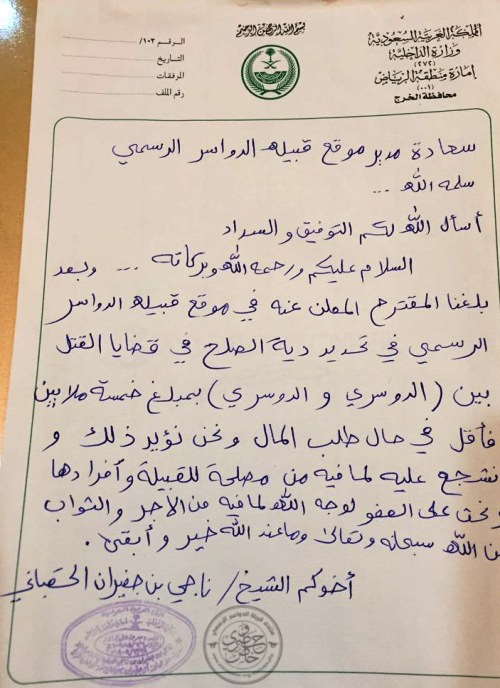 بسم الله الرحمن الرحيم
المملكة العربية السعودية
وزارة الداخلية
(٢٧٢)
إمارة منطقة الرياض
(٠٠١)
محافظة الخرج
الرقم ١٠٣/
التاريخ
المرفقات
رقم الملف
سعادة مدير موقع قبيلة الدواسر الرسمي
سلمه الله ...
أسأل الله لكم التوفيق والسداد
السلام عليكم ورحمة الله وبركاته ... وبعد
بلغنا المقترح المعلن عنه في موقع قبيلة الدواسر
الرسمي في تحديد دية الصلح في قضايا القتل
بين (الدوسري و الدوسري) بمبلغ خمسة ملايين
فأقل في حال طلب المال ونحن نؤيد ذلك و
نشجع عليه لما فيه من مصلحة للقبيلة وأفرادها
نحث على العفو لوجه الله لما فيه من الأجر والثواب
من الله سبحانه وتعالى وما عند الله خير وأبقى.
أخوكم الشيخ/ ناجي بن جفيران الحقباني